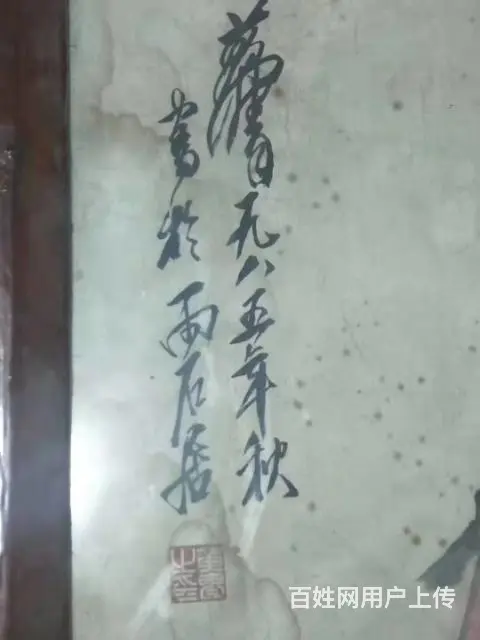 一九八五年秋
寫於雨石居
之印
百姓网用户上传